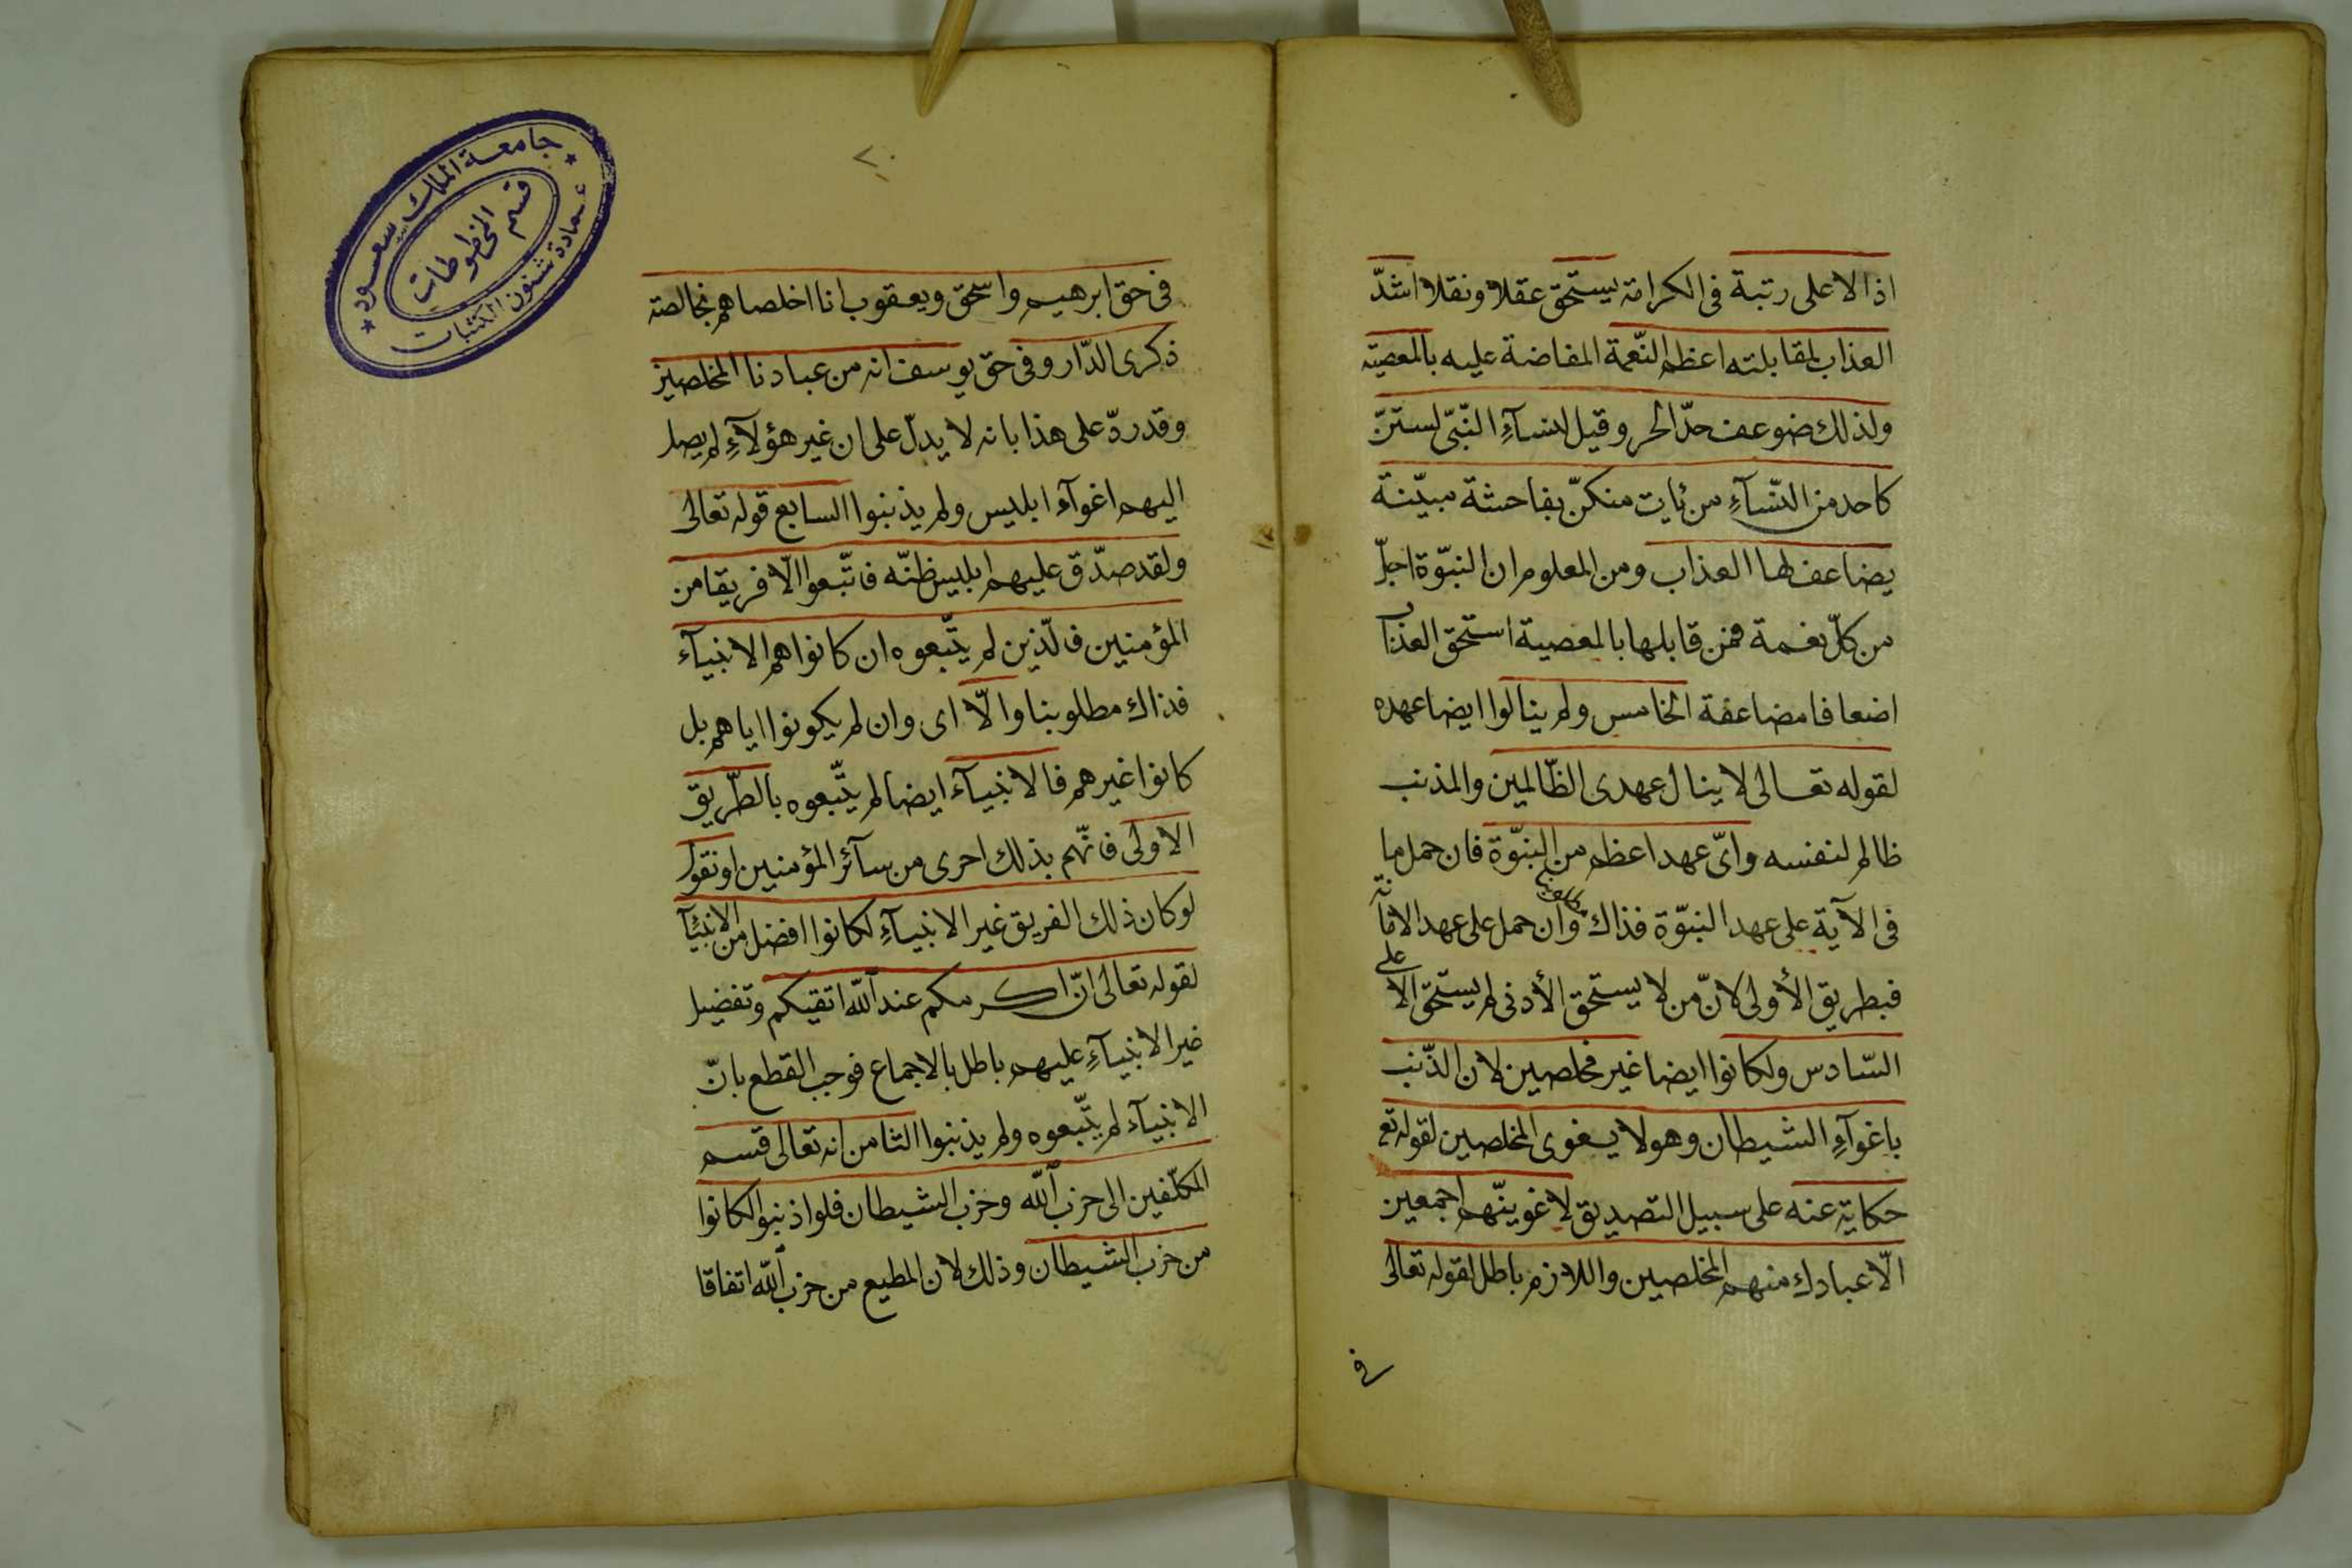 اذ الاعلى رتبة فى الكرامة يستحق عقلا ونقلا اشدّ
العذاب لمقابلته اعظم النّعمة المفاضة عليه بالمعصية
ولذلك ضوعف حدّ الحر وقيل لنسآءِ النّبىّ لستنّ
كاحد من النّسآءِ من يات منكنّ بفاحشة مبيّنة
يضاعف لها العذاب ومن المعلوم ان النبوّة اجلّ
من كلّ نعمة فمن قابلها بالمعصية استحق العذاب
اضعافا مضاعفة الخامس ولم ينالوا ايضا عهده
لقوله تعالى لا ينال عهدى الظّالمين والمذنب
ظالم لنفسه واىّ عهد اعظم من النبوّة فان حمل ما
فى الآية على عهد النبوّة فذاك وان حمل على عهد الامامة
فبطريق الأولى لانّ من لا يستحق الأدنى لم يستحق الاعلى
السّادس ولكانوا ايضا غير مخلصين لان الذّنب
باغوآءِ الشيطان وهو لا يغوى المخلصين لقوله تع
حكاية عنه على سبيل التصديق لاغوينّهم اجمعين
الّا عبادك منهم المخلصين واللازم باطل لقوله تعالى
فى
٢٠
جامعة الملك سعود
قسم المخطوطات
عمادة شئون المكتبات
فى حق ابرهيم واسحق ويعقوب انا اخلصاهم بخالصة
ذكرى الدّار وفى حق يوسف انه من عبادنا المخلصين
وقد ردّ على هذا بانه لا يدلّ على ان غير هؤلآءِ لم يصل
اليهم اغوآء ابليس ولم يذنبوا السابع قوله تعالى
ولقد صدّق عليهم ابليس ظنّه فاتّبعوا الّا فريقا من
المؤمنين فالّذين لم يتّبعوه ان كانوا هم الانبيآء
فذاك مطلوبنا والّا اى وان لم يكونوا اياهم بل
كانوا غيرهم فالانبيآء ايضا لم يتّبعوه بالطّريق
الاولى فانّهم بذلك احرى من سآئر المؤمنين او نقول
لو كان ذلك الفريق غير الانبيآءِ لكانوا افضل من الانبيآ
لقوله تعالى انّ اكرمكم عند اللّه اتقيكم وتفضيل
غير الانبيآءِ عليهم باطل بالاجماع فوجب القطع بانّ
الانبيآء لم يتّبعوه ولم يذنبوا الثامن انه تعالى قسم
المكلّفين الى حزب اللّه وحزب الشيطان فلو اذنبوا لكانوا
من حزب الشيطان وذلك لان المطيع من حزب اللّه اتفاقا